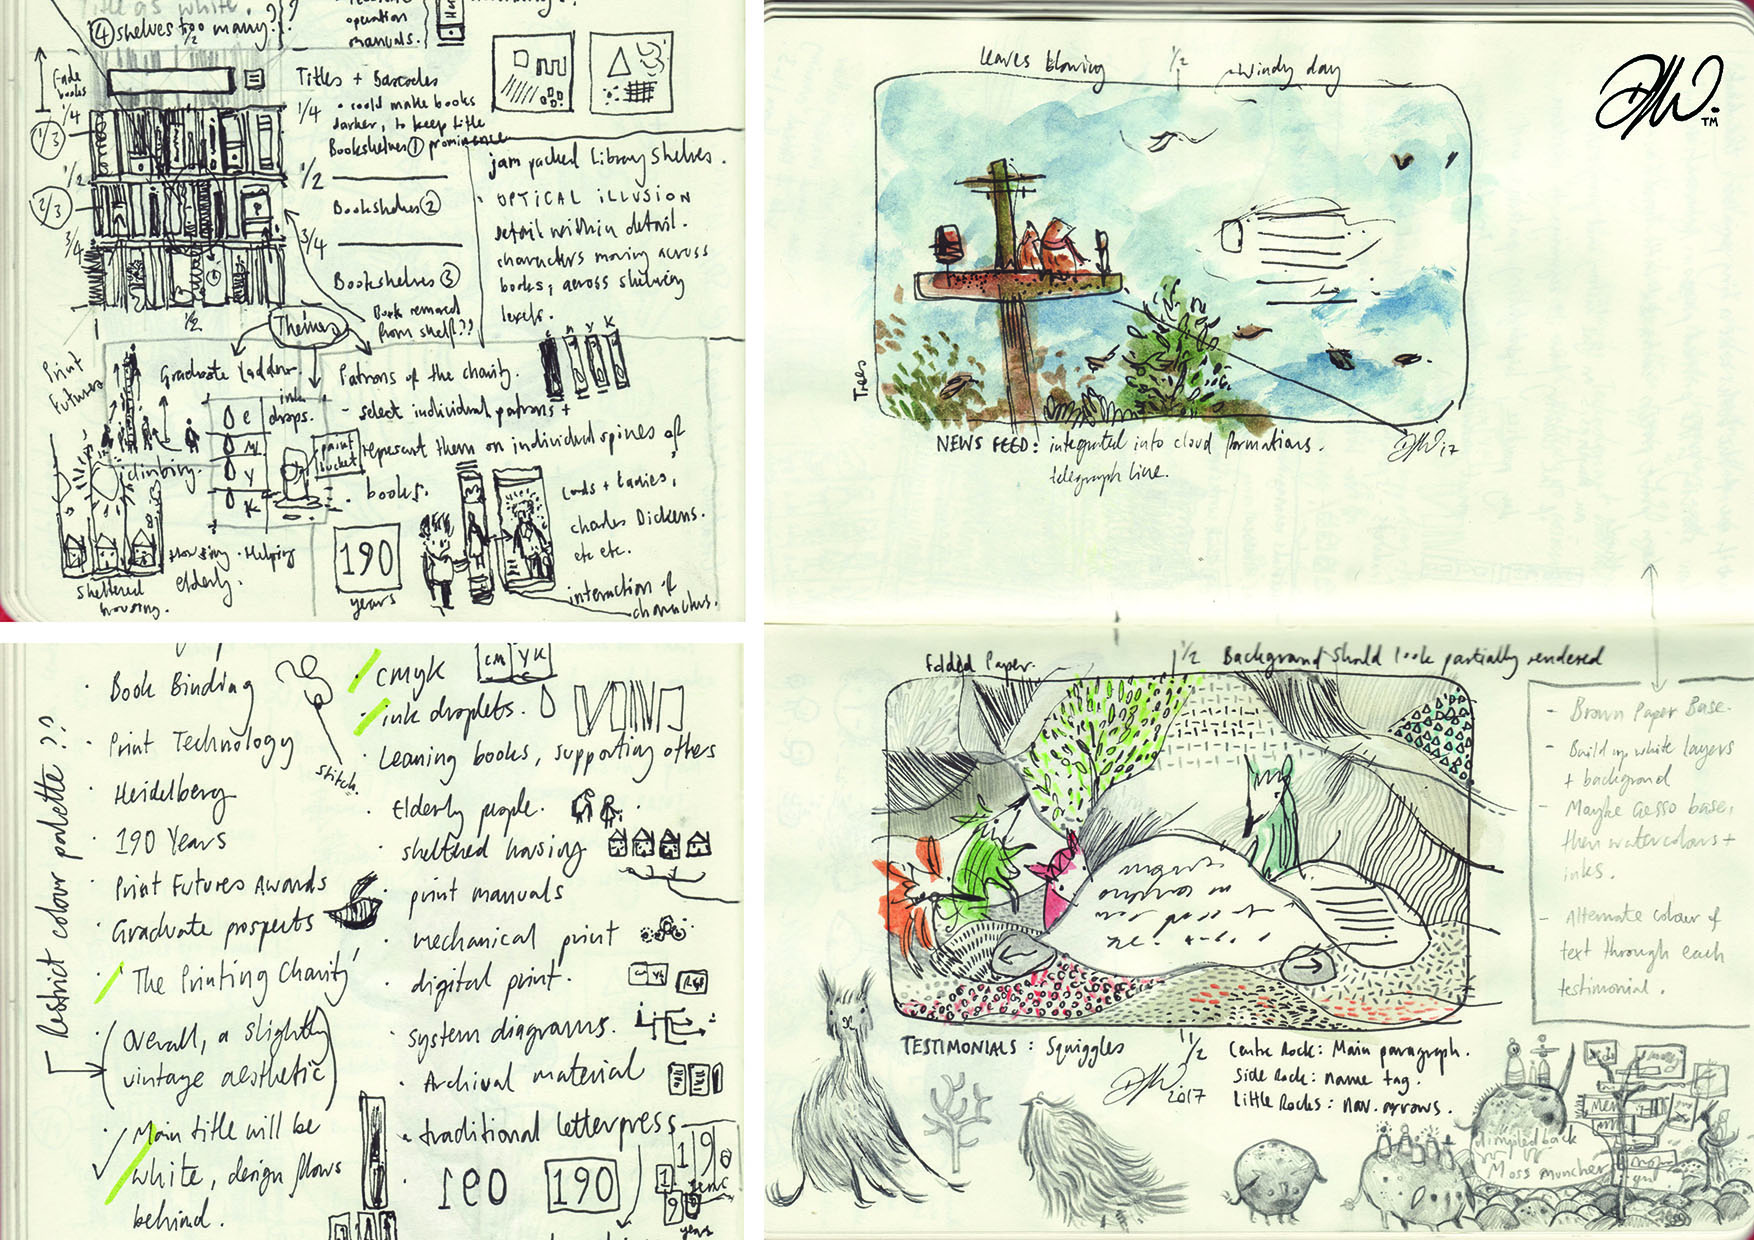 Title as white.
④ shelves too many??
operation
manuals.
Fade
books
1/4
1/3
1/2
2/3
3/4
1/2
Titles + Barcodes
1/4
• could make books
darker, to keep title
Bookshelves ① prominence
1/2
Bookshelves ②
3/4
Bookshelves ③
Book removed
from shelf??
jam packed library shelves.
OPTICAL ILLUSION
detail within detail.
characters moving across
books, across shelving
levels.
Themes
Print
Futures
Graduate Ladder.
climbing.
ink
drops.
C
M
Y
K
paint
bucket
Housing • Helping
elderly.
sheltered
housing.
Patrons of the charity.
C M Y K
- select individual patrons +
represent them on individual spines of
books.
Lords + Ladies,
Charles Dickens.
etc etc.
190
years
interaction of
characters.
Restrict colour palette??
• Book Binding
• Print Technology
stitch.
• Heidelberg
• 190 Years
• Print Futures Awards
• Graduate prospects
• 'The Printing Charity'
• (Overall, a slightly
vintage aesthetic)
• Main title will be
white, design flows
behind.
• CMYK
CM YK
• ink droplets.
• Leaning books, supporting others
• Elderly people.
• sheltered housing
• print manuals
• mechanical print
• digital print.
• system diagrams.
• Archival material
• traditional letterpress
190
190
190
years
leaves blowing
1/2
windy day
DMW.
TM
Trees
NEWS FEED: integrated into cloud formations.
telegraph line.
DMW '17
Folded Paper.
1/2
Background should look partially rendered
- Brown Paper Base.
- Build up white layers
+ background
- Maybe Gesso base,
then watercolours +
inks.
- Alternate colour of
text through each
testimonial.
TESTIMONIALS: Squiggles
1/2
DMW 2017
Centre Rock: Main paragraph.
Side Rock: name tag.
Little Rocks: nav. arrows.
dimpled back
Moss muncher